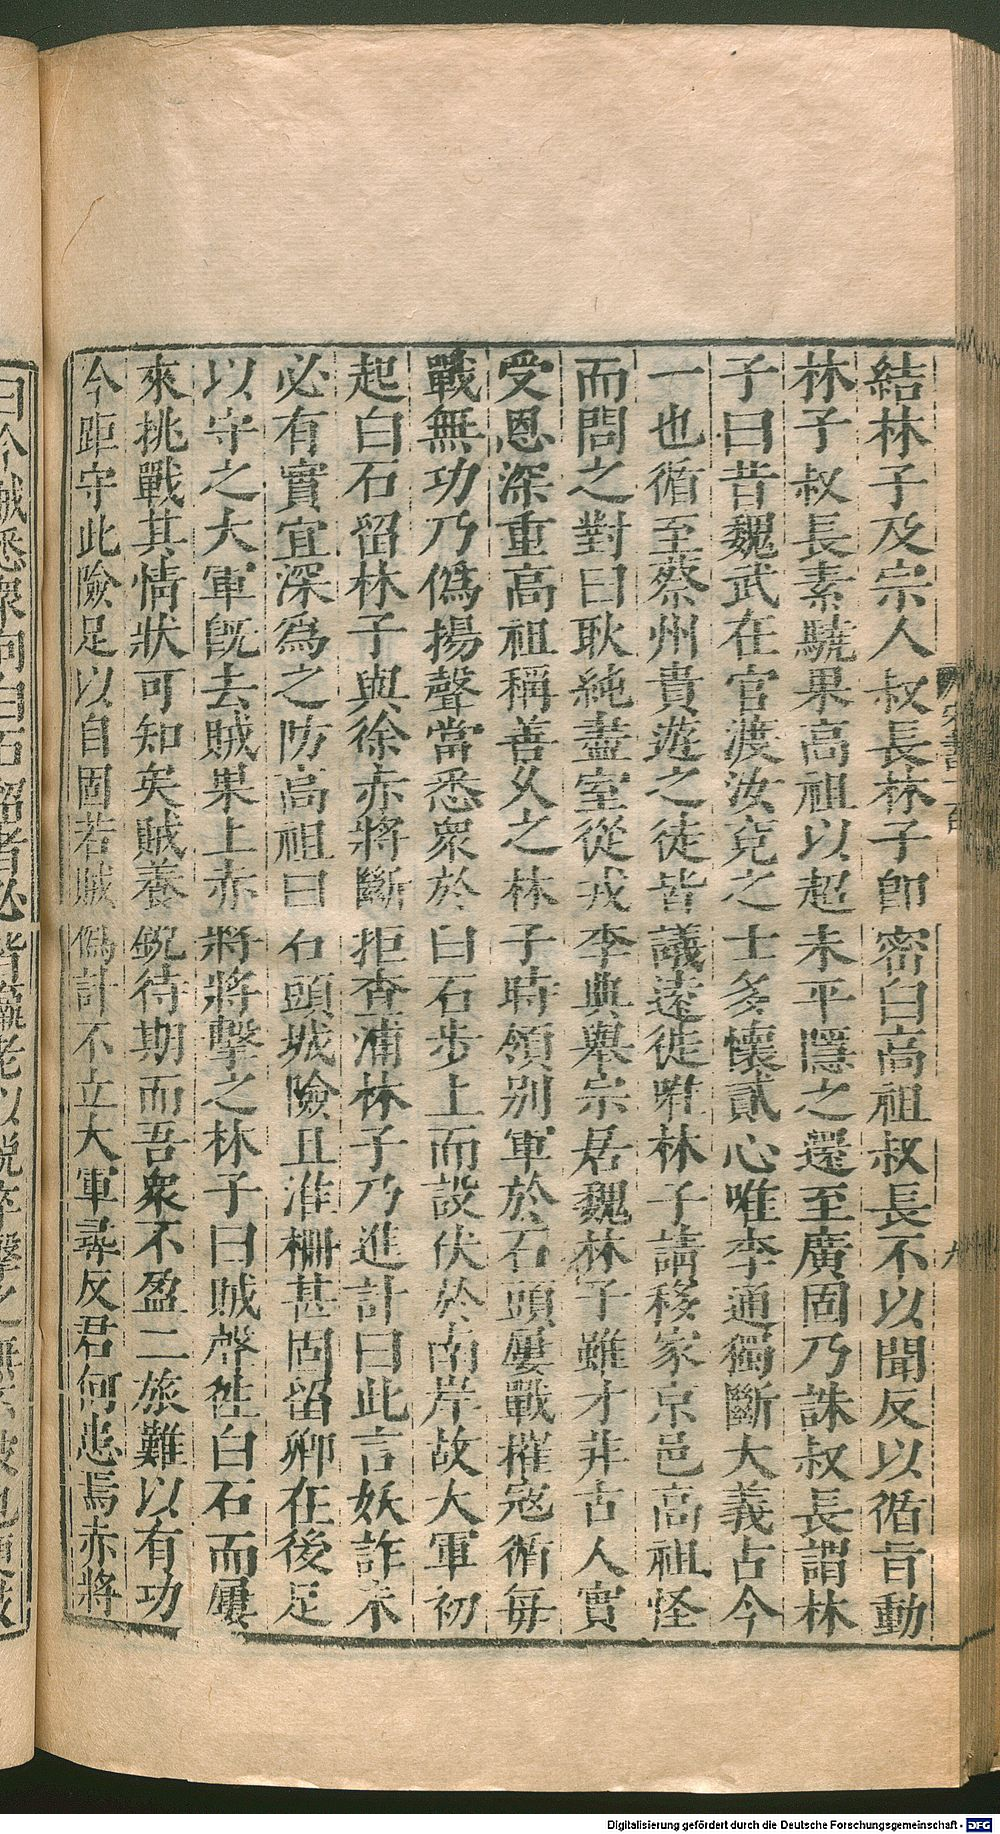 結林子及宗人叔長林子即密白高祖叔長不以聞反以循旨動
林子叔長素驍果高祖以超未平隱之還至廣固乃誅叔長謂林
子曰昔魏武在官渡汝兗之士多懷貳心唯李通獨斷大義古今
一也循至蔡州貴遊之徒皆議遠徙唯林子請移家京邑高祖怪
而問之對曰耿純盡室從戎李典舉宗居魏林子雖才非古人實
受恩深重高祖稱善久之林子時領别軍於石頭屢戰摧寇循每
戰無功乃僞揚聲當悉衆於白石步上而設伏於南岸故大軍初
起白石留林子與徐赤將斷拒查浦林子乃進計曰此言妖詐未
必有實宜深爲之防高祖曰石頭城險且淮柵甚固留卿在後足
以守之大軍旣去賊果上赤將將擊之林子曰賊聲往白石而屢
來挑戰其情狀可知矣賊養銳待期而吾衆不盈二旅難以有功
今距守此險足以自固若賊僞計不立大軍尋反君何患焉赤將
宋書一百
九
曰今賊悉衆向白石留者必皆羸老以銳卒擊之無不破也
Digitalisierung gefördert durch die Deutsche Forschungsgemeinschaft - DFG